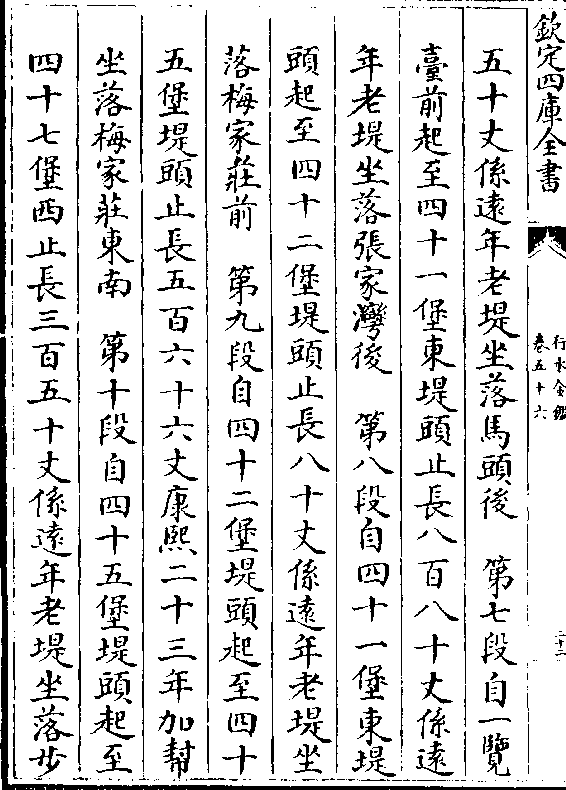 欽定四庫全書
行水金鑑
卷五十六
五十丈係遠年老堤坐落馬頭後　第七段自一覽
臺前起至四十一堡東堤頭止長八百八十丈係遠
年老堤坐落張家灣後　第八段自四十一堡東堤
頭起至四十二堡堤頭止長八十丈係遠年老堤坐
落梅家莊前　第九段自四十二堡堤頭起至四十
五堡堤頭止長五百六十六丈康熙二十三年加幫
坐落梅家莊東南　第十段自四十五堡堤頭起至
四十七堡西止長三百五十丈係遠年老堤坐落步